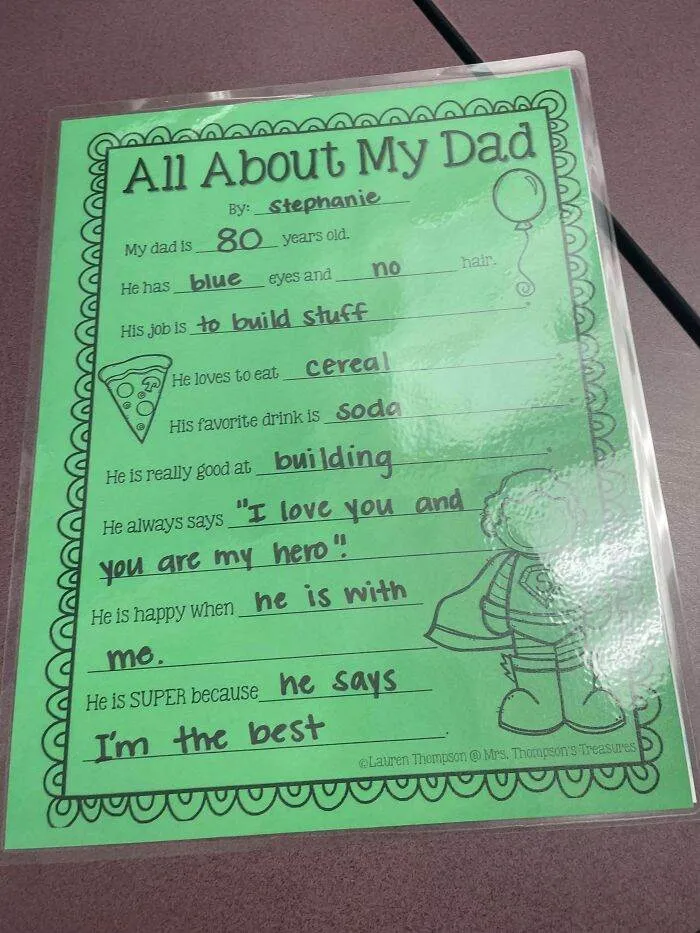 All About My Dad
By: stephanie
My dad is 80 years old.
He has blue eyes and no hair.
His job is to build stuff.
He loves to eat cereal.
His favorite drink is soda.
He is really good at building.
He always says "I love you and
you are my hero".
He is happy when he is with
me.
He is SUPER because he says
I'm the best.
©Lauren Thompson @ Mrs. Thompson's Treasures
S